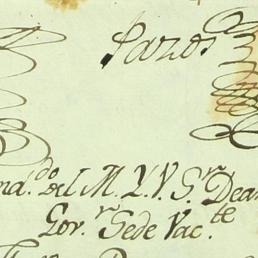 Pazos
md.do del M. Y. V. Sr. Dean
Gor.r Sede Vac.te